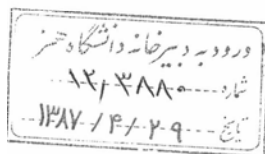 ورود به دبیرخانه دانشگاه هنر
شماره ۱۲/۳۸۸۰
تاریخ ۱۳۸۷/۴/۲۹